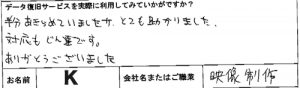 データ復旧サービスを実際に利用してみていかがですか?
半分あきらめていましたが、とても助かりました。
対応もじん速です。
ありがとうございました
お名前 K 会社名またはご職業 映像制作